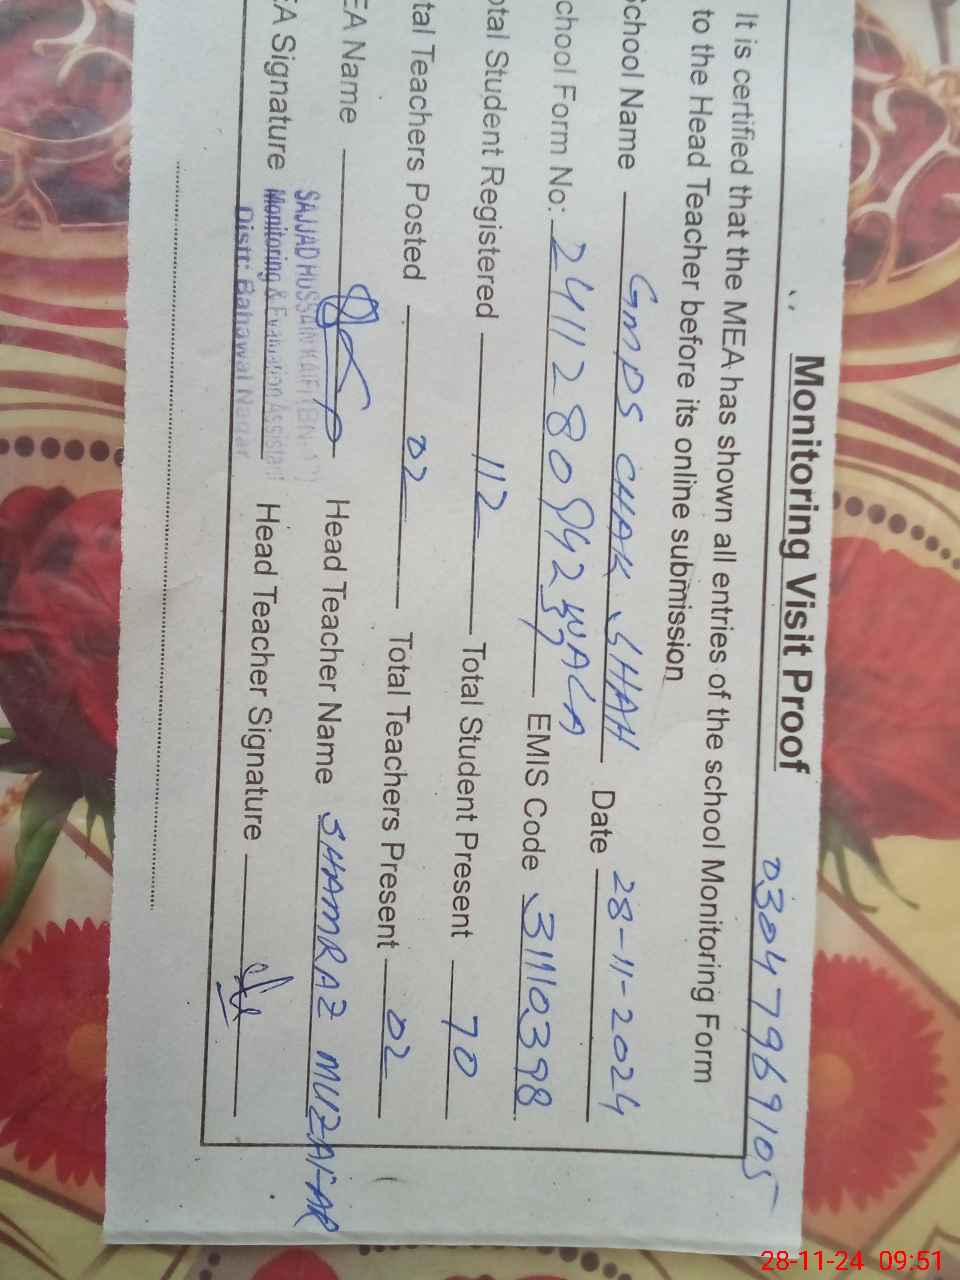 Monitoring Visit Proof 03047969105
It is certified that the MEA has shown all entries of the school Monitoring Form
to the Head Teacher before its online submission
School Name GMPS CHAK SHAH WALA Date 28-11-2024
chool Form No: EMIS Code 31110398
otal Student Registered 112 Total Student Present 70
tal Teachers Posted 02 Total Teachers Present 02
EA Name Head Teacher Name SHAMRAZ MUZAFAR
SAJJAD HUSSAIN
EA Signature Monitoring & Evaluation Assistant Head Teacher Signature
Distt: Bahawal Nagar
28-11-24 09:51